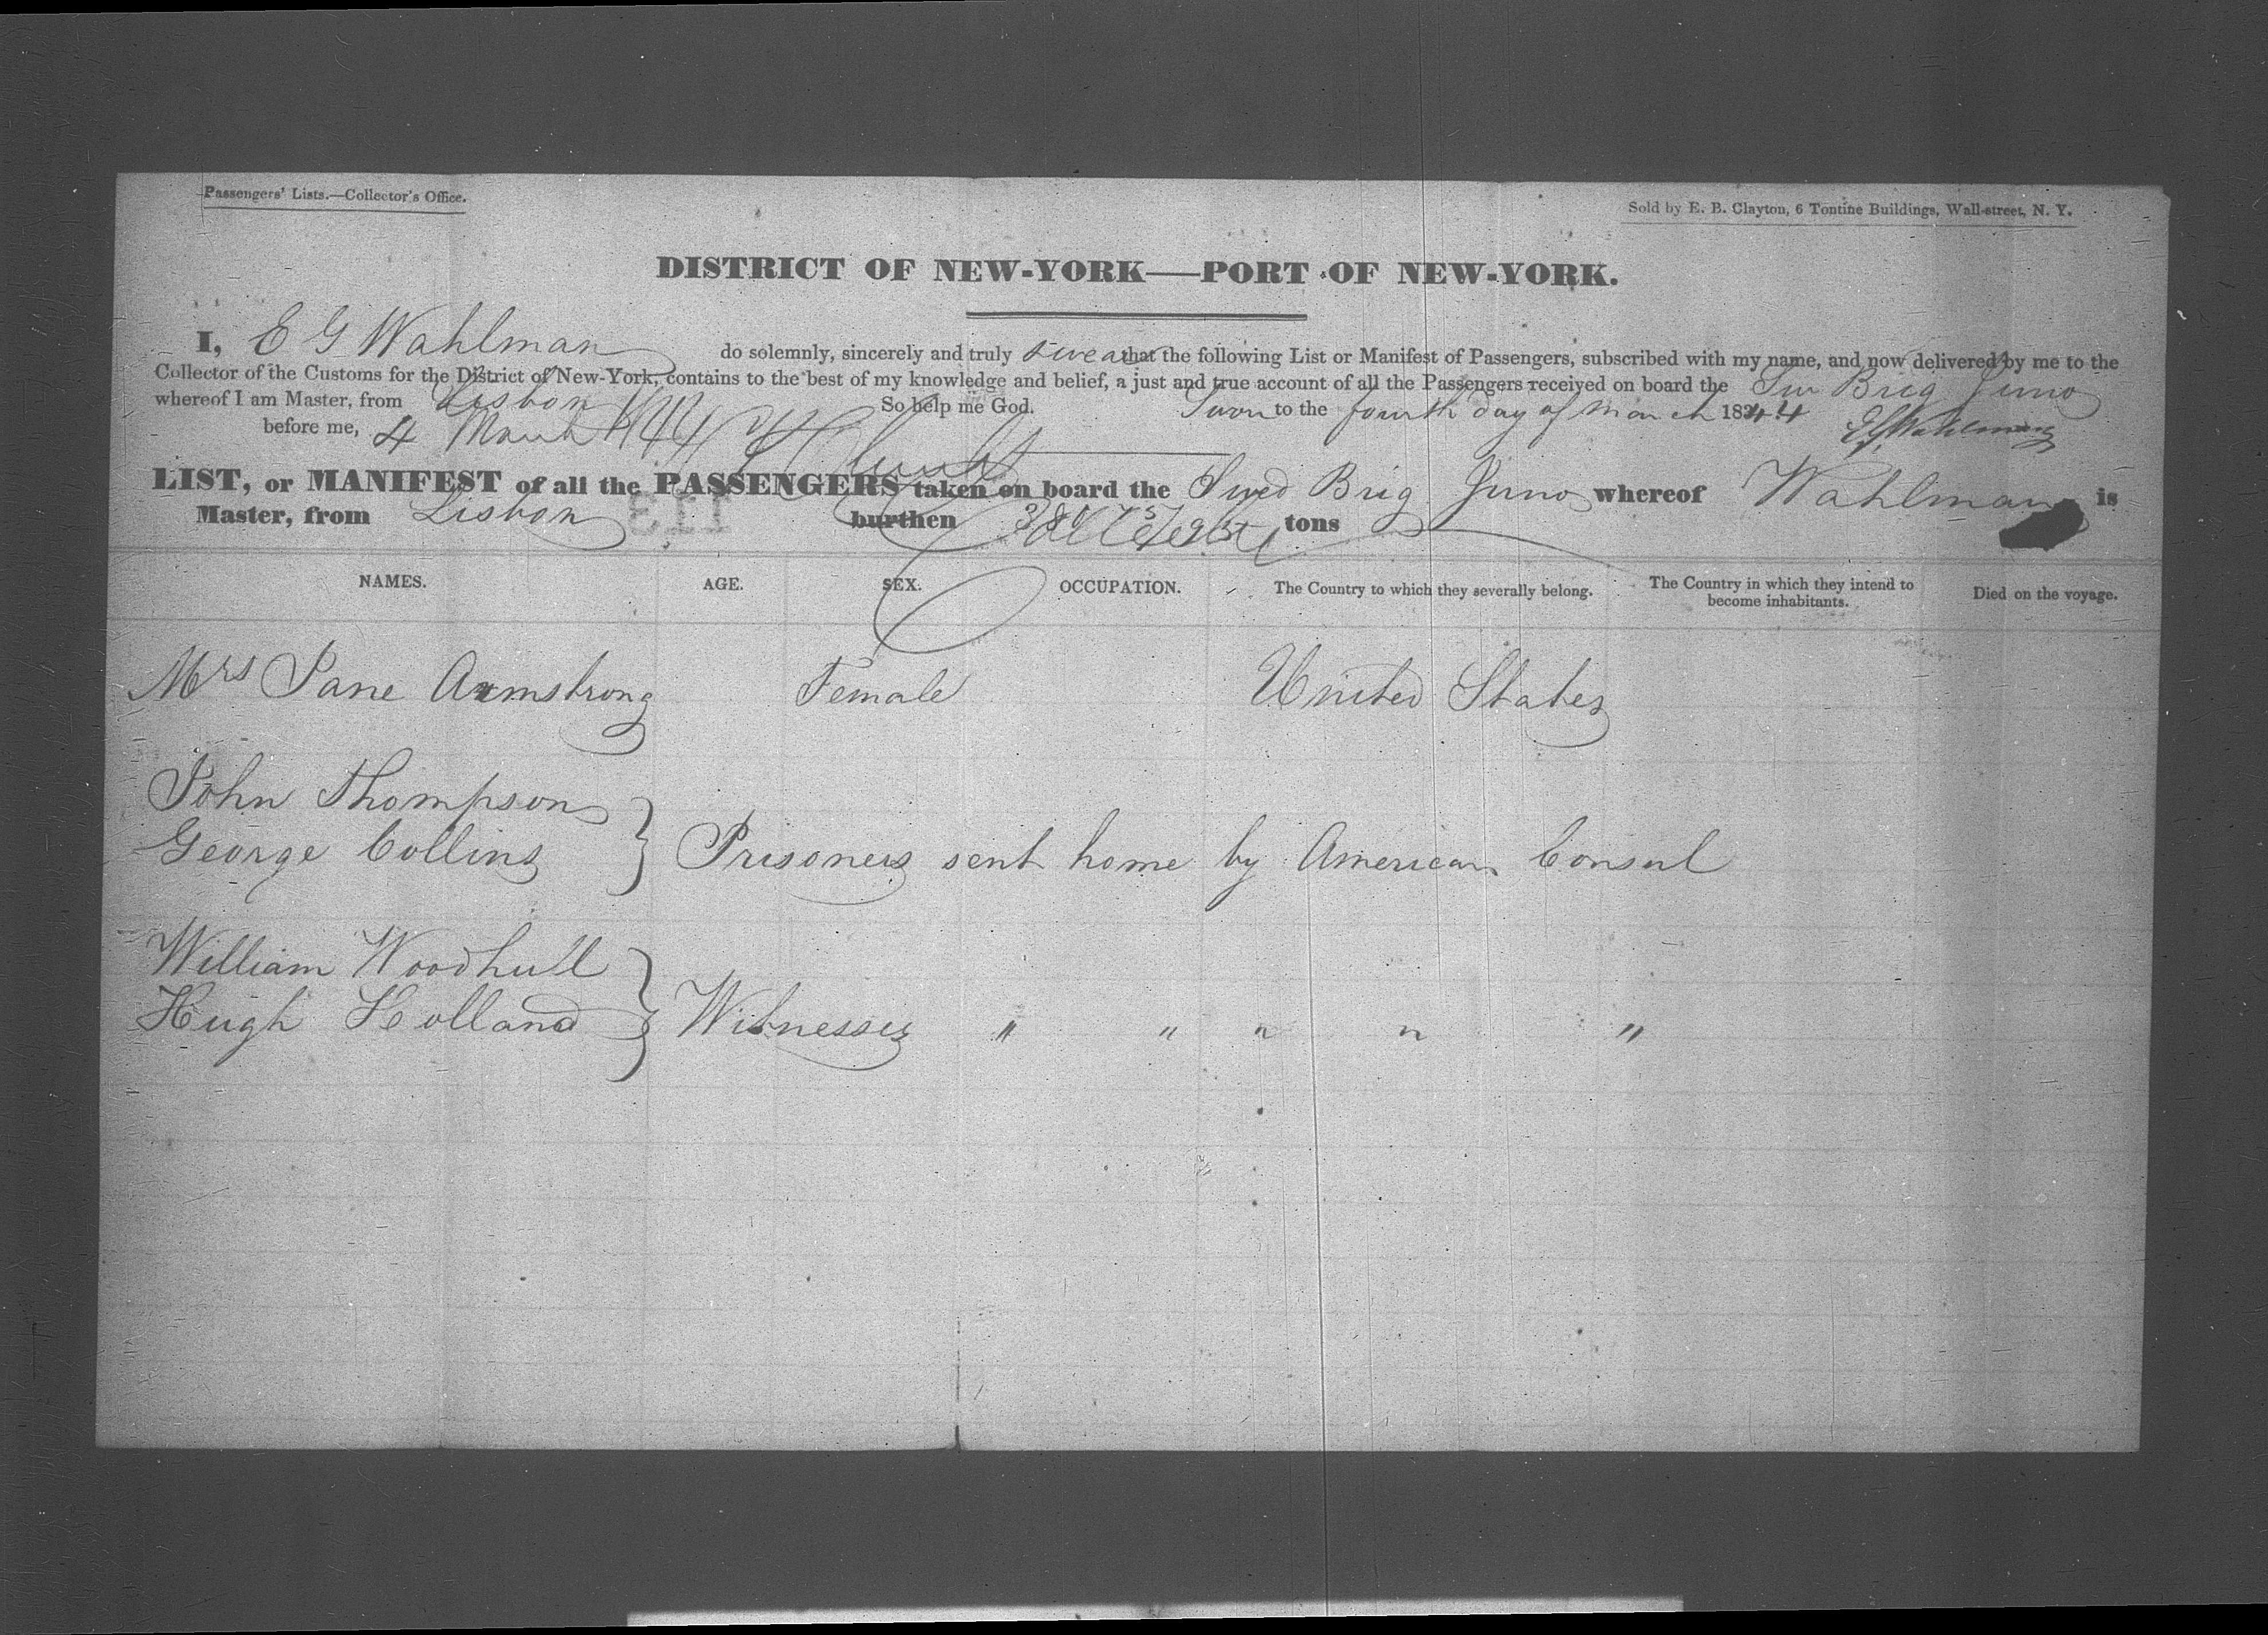 Passengers' Lists.—Collector's Office.
Sold by E. B. Clayton, 6 Tontine Buildings, Wall-street, N. Y.
DISTRICT OF NEW-YORK—PORT OF NEW-YORK.
I, E G Wahlman do solemnly, sincerely and truly swear that the following List or Manifest of Passengers, subscribed with my name, and now delivered by me to the
Collector of the Customs for the District of New-York, contains to the best of my knowledge and belief, a just and true account of all the Passengers received on board the Sw Brig Juno
whereof I am Master, from Lisbon So help me God. Sworn to the fourth day of March 1844
before me, 4 March 1844 E G Wahlman
LIST, or MANIFEST of all the PASSENGERS taken on board the Swed Brig Juno whereof Wahlman is
Master, from Lisbon 113 burthen tons
NAMES. AGE. SEX. OCCUPATION. The Country to which they severally belong. The Country in which they intend to become inhabitants. Died on the voyage.
Mrs Jane Armstrong Female United States
John Thompson
George Collins } Prisoners sent home by American Consul
William Woodhull
Hugh Holland } Witnesses " " " " "